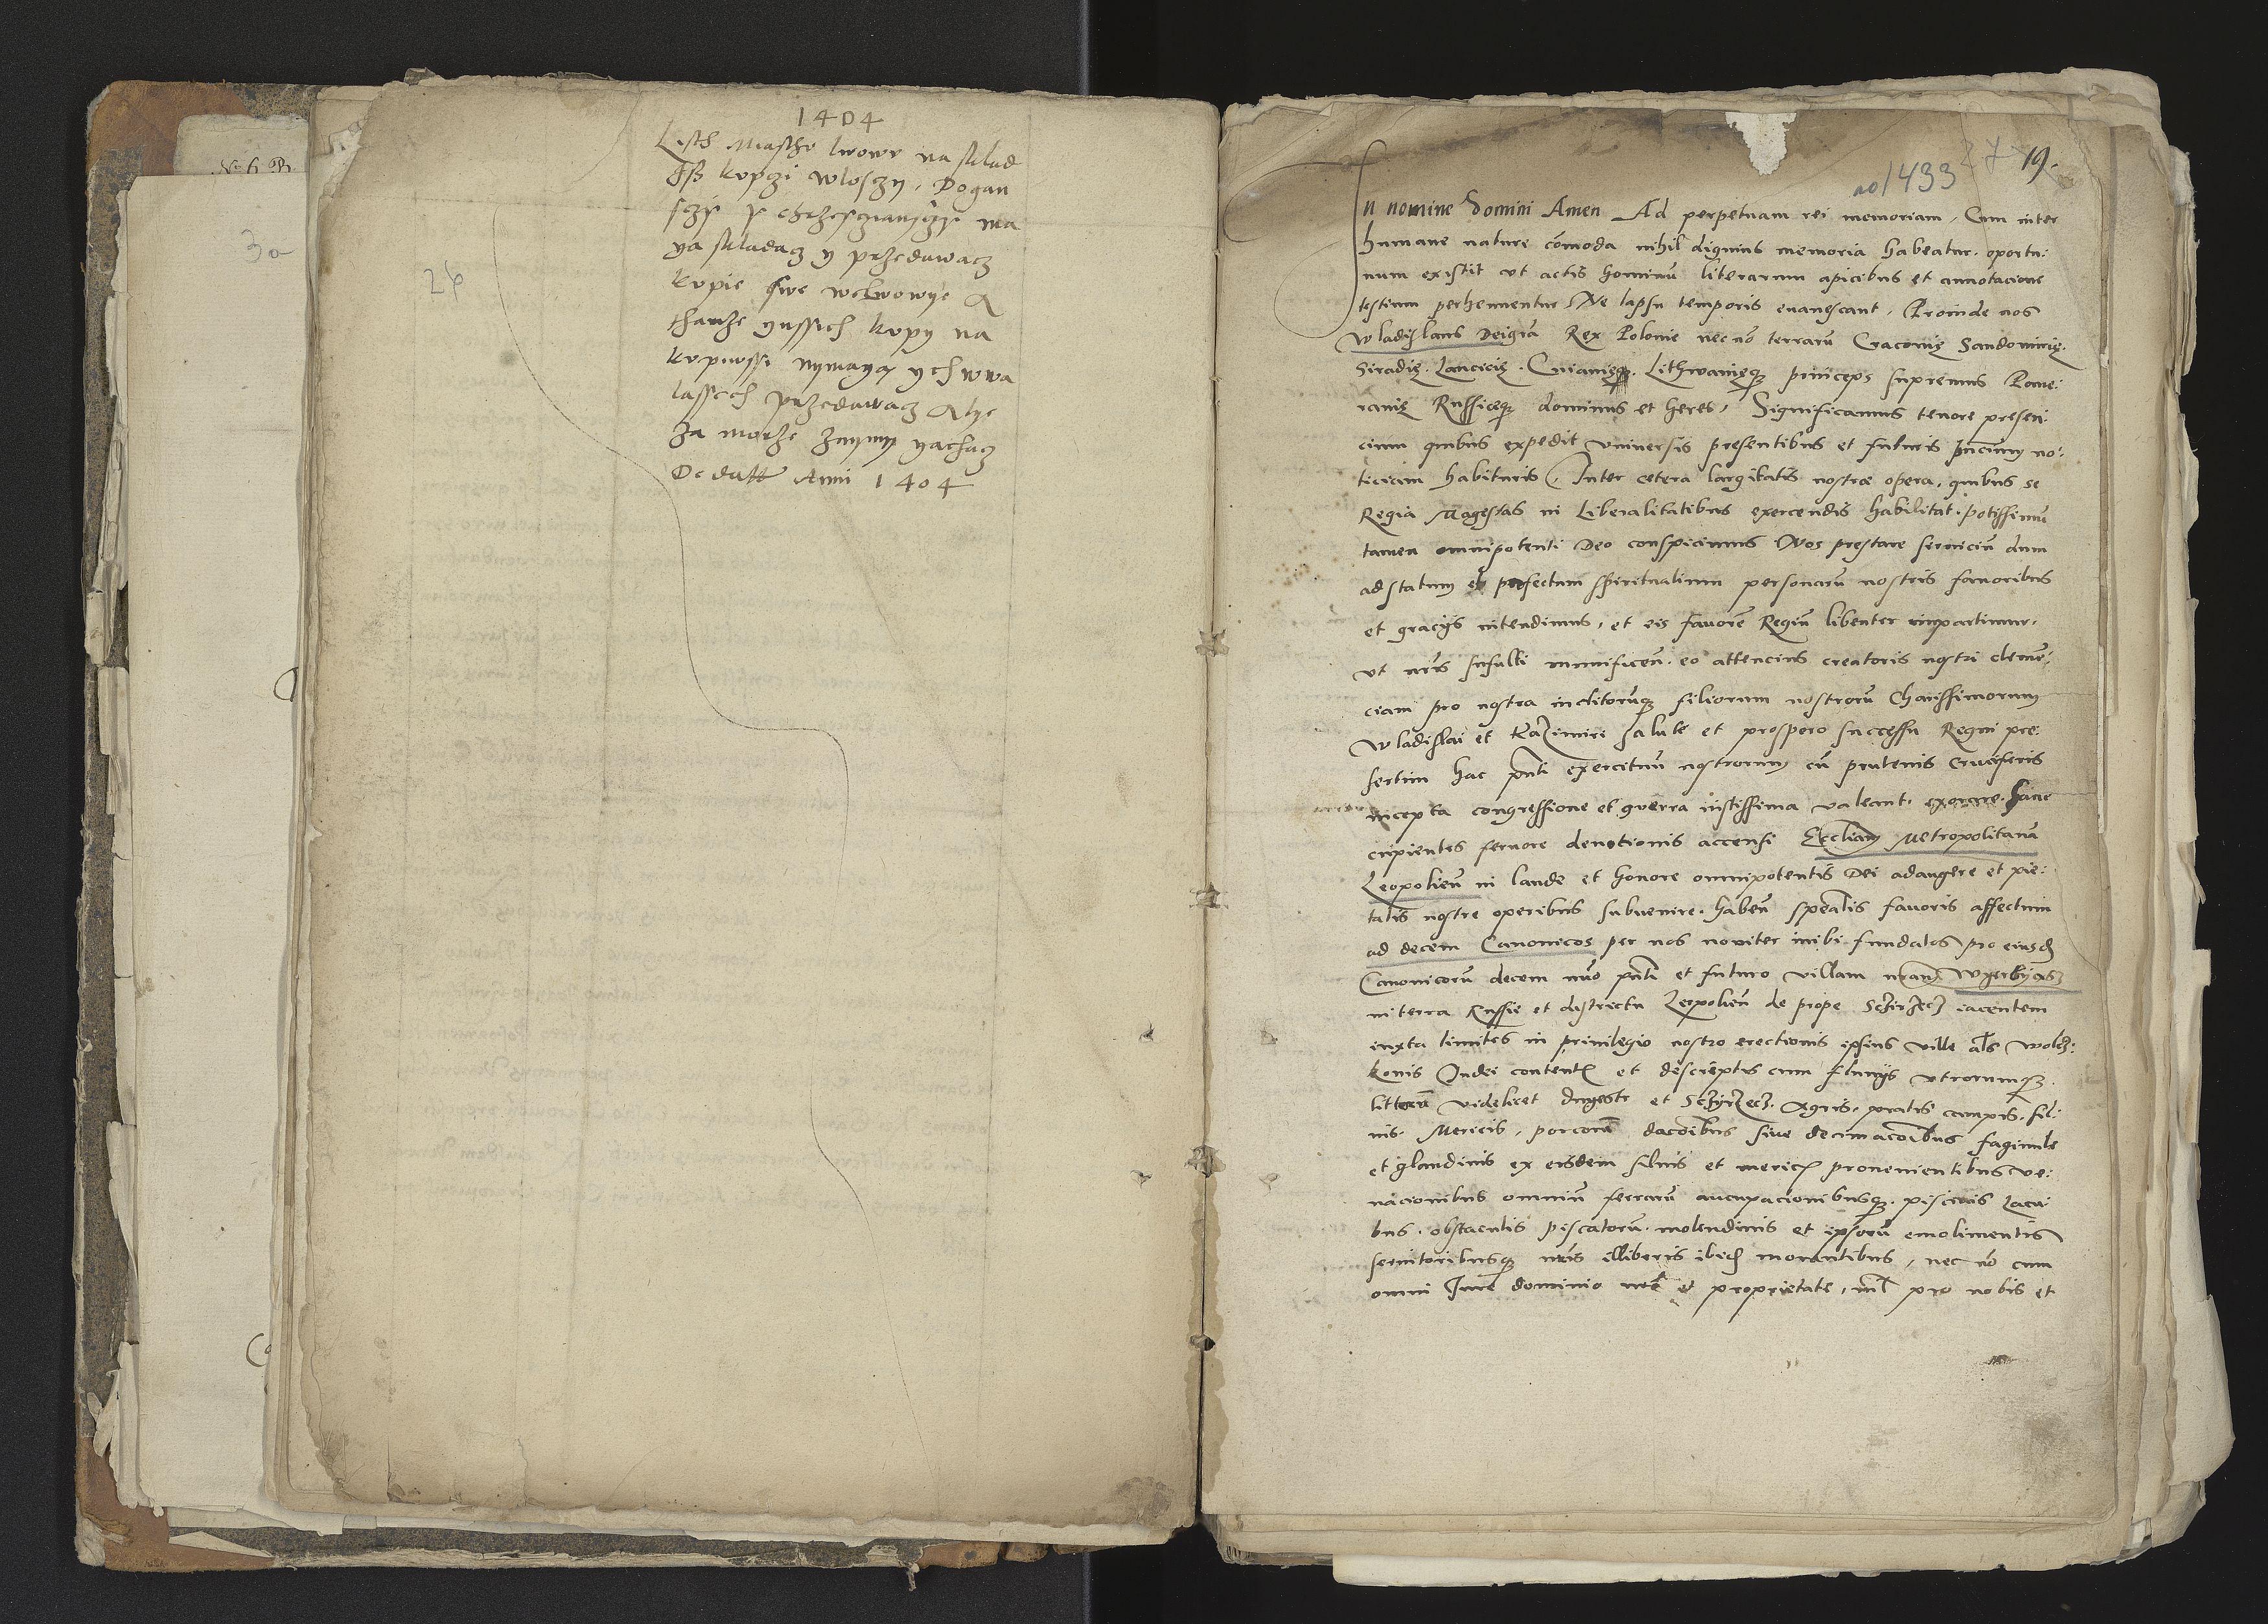 1404
Lisch Miasthv lwowv na sklad
Jß kvpczi wlosczy, Dogan
sczy y chrzesczianssczy ma
ya skladacz y przedawacz
kvpie swe welwowye A
thamze ynssich kvpy na
kvpwssi nymayą ych wwa
lassech przedawacz Alye
za morze znymy yachacz
De datt Anni 1404
26
3a
ao 1433 27 19.
In nomine Domini Amen Ad perpetuam rei memoriam, Cum inter
humane nature cōmoda nihil dignius memoria habeatur. oportu:
num existit vt actis hominū literarum apicibus et annotacione
testium perhennentur, Ne lapsu temporis euanescant, Proinde nos
Wladislaus Deigrā Rex Polonie necnō terrarū Cracouię Sandomirię.
Siradię. Lancicię. Cuiauięq. Lithwanięq princeps supremus Pome:
ranię Russieq dominus et heres, Significamus tenore presen:
cium quibus expedit vniuersis presentibus et futuris no:
ticiam habituris, Inter cetera largitatis nostræ opera, quibus se
Regia Magestas in Liberalitatibus exercendis habilitat. potissimū
tamen omnipotenti Deo conspicimus Nos prestare seruiciū dum
ad statum et profectum spiritualium personarū nostris fauoribus
et gracijs intendimus, et eis fauorē Regiū libenter impartimur.
vt nrīs suffulti munificen. eo attencius creatoris nostri clemē:
ciam pro nostra inclitorūq filiorum nostrorū Charissimorum
Wladislai et Kazimiri salute et prospero successu Regni pre:
sertim hac pnti exercituū nostrorum cū prutenis Cruciferis
incepta congressione et guerra iustissima valeant. exorare. Sane
cupientes feruore deuotionis accensi Eccliam Metropolitanā
Leopolień in laude et honore omnipotentis Dei adaugere et pie:
tatis nostre operibus subuenire. habeń spealis fauoris affectum
ad decem Canonicos per nos nouiter inibi fundatos pro eiusd
Canonicorū decem nūo pnti et futuro villam nram Wyerbyąsz
in terra Russie et districtu Leopolień de prope Sczirzecz iacentem
iuxta limites in priuilegio nostro erectionis ipsius ville als Wolcz:
konis Judei content et descriptis cum fluuijs vtrorumq.
littorū videlicet Dnyestr et Sczyrzecz. Agris, pratis campis, sil:
uis. Mericis, porcorū dacoībus siue decimacoībus faginule
et glandinis ex eisdem siluis et meric prouenientibus ve:
nacionibus omniū ferrarū aucupacionibusq. piscinis Lacu:
bus. obstaculis piscatorū. molendinis et ipsorū emolimentis
seruitoribusq nrīs illiberis ibid morantibus, nec nō cum
omni Jure dominio et proprietate, nīl pro nobis et